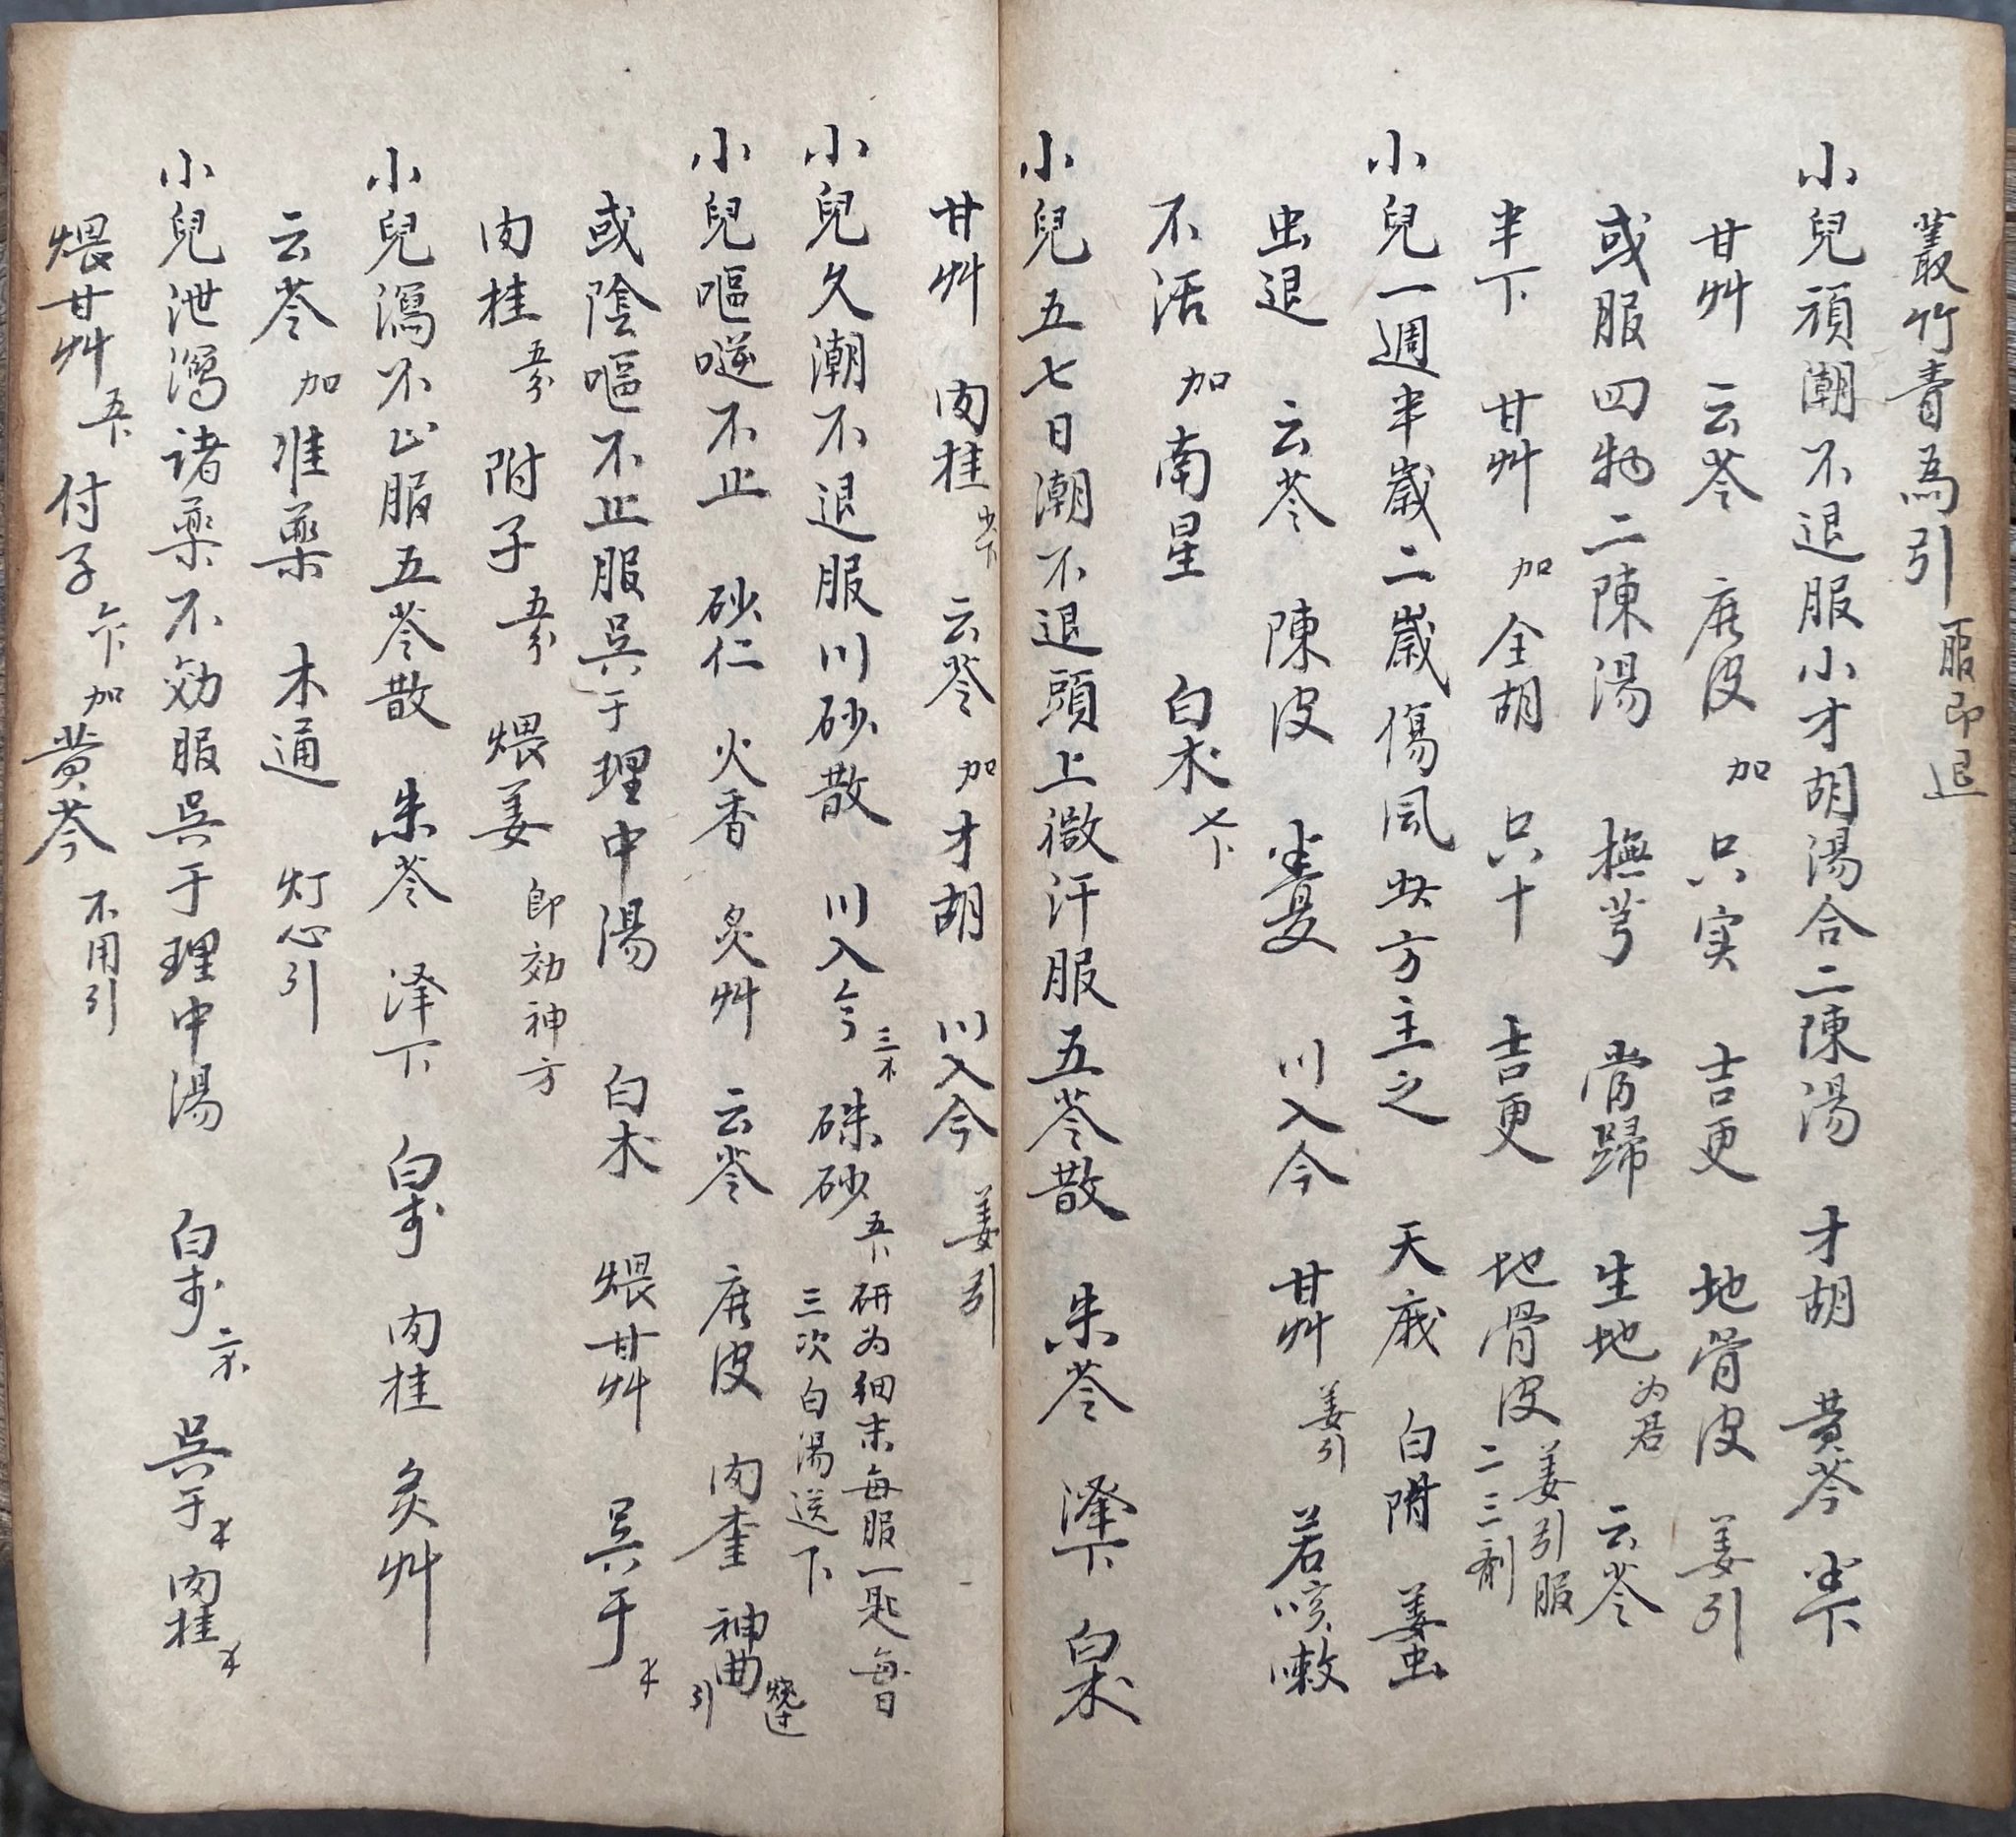 叢竹青為引 服即退
小兒頑潮不退服小才胡湯合二陳湯 才胡 黄芩 半下
甘艸 云苓 陳皮 加 只实 吉更 地骨皮 姜引
或服四物二陳湯 撫芎 當歸 生地 为君 云苓
半下 甘艸 加 全胡 只十 吉更 地骨皮 姜引服二三剤
小兒一週半歲二歲傷風 方主之 天 白附 姜虫
虫退 云苓 陳皮 半夏 川入今 甘艸 姜引 若咳嗽
不活 加 南星 白术 七卜
小兒五七日潮不退頭上微汗服五苓散 朱苓 澤下 白术
甘艸 肉桂 云苓 加 才胡 川入今 姜引
小兒久潮不退服川砂散 川入今 三不 硃砂 五卜 研为細末每服一匙每日三次白湯送下
小兒嘔噠不止 砂仁 火香 炙艸 云苓 皮 肉奎 神曲 引
或陰嘔不止服吳于理中湯 白术 煨甘艸 吳于
肉桂 五分 附子 五分 煨姜 即効神方
小兒瀉不止服五苓散 朱苓 泽下 白术 肉桂 炙艸
云苓 加 准藥 木通 灯心引
小兒泄瀉诸藥不効服吳于理中湯 白术 吳于 肉桂
煨甘艸 五卜 付子 加 黄芩 不用引